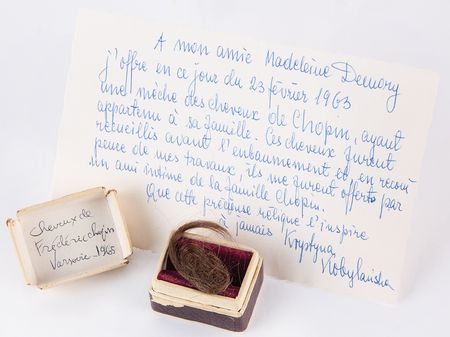 A mon amie Madeleine Demory
j'offre en ce jour du 23 février 1963
une mèche des cheveux de Chopin, ayant
appartenu à sa famille. Ces cheveux furent
recueillis avant l'enbaumement et en
de mes travaux, ils me furent offerts par
un ami intime de la famille Chopin.
Que cette précieuse relique t'inspire
à jamais Krystyna
Kobylańska
Cheveux de
Frédéric Chopin
Varsovie - 1965